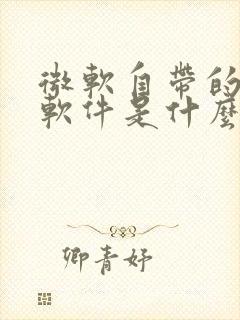 微軟自帶的
軟件是什麼
卿青妤